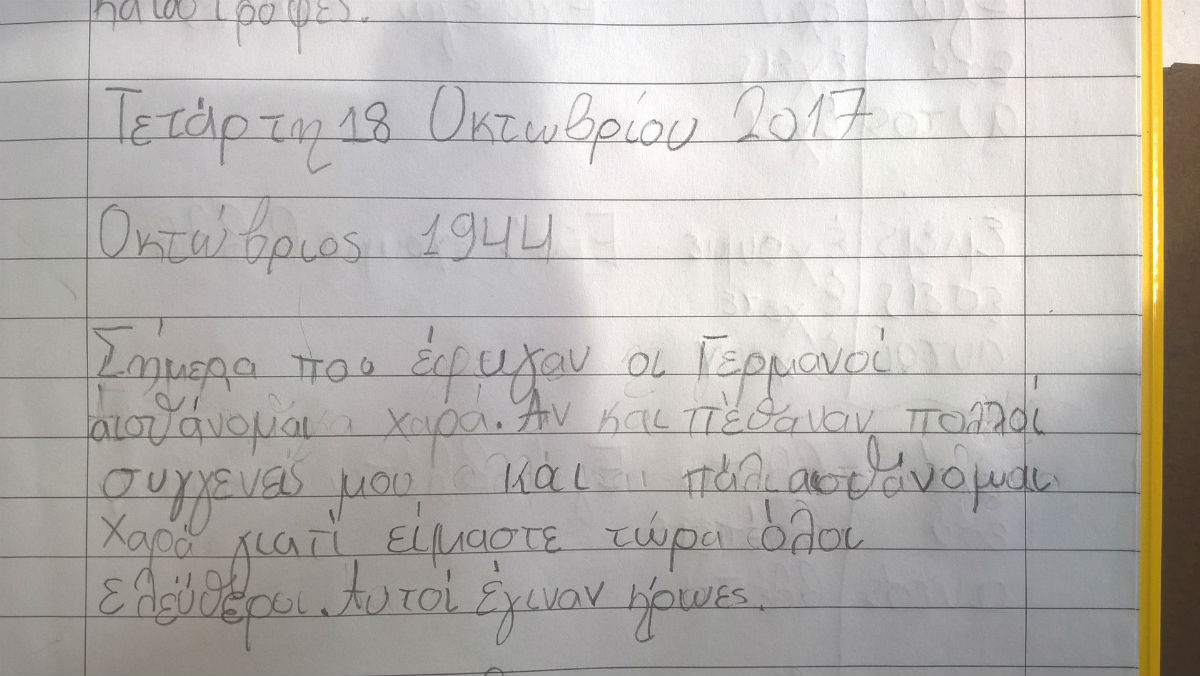 καταστροφές.
Τετάρτη 18 Οκτωβρίου 2017
Οκτώβριος 1944
Σήμερα που έφυγαν οι Γερμανοί
αισθάνομαι χαρά. Αν και πέθαναν πολλοί
συγγενείς μου και πάλι αισθάνομαι
χαρά γιατί είμαστε τώρα όλοι
ελεύθεροι. Αυτοί έγιναν ήρωες.